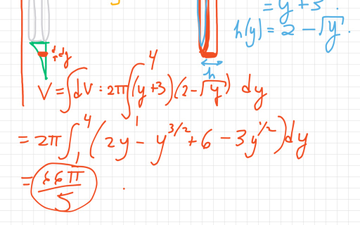 = y + 3
h(y) = 2 - √y
dy
h
V = ∫dV = 2π ∫₁⁴ (y+3)(2-√y) dy
= 2π ∫₁⁴ (2y - y^{3/2} + 6 - 3y^{1/2}) dy
= 66π/5